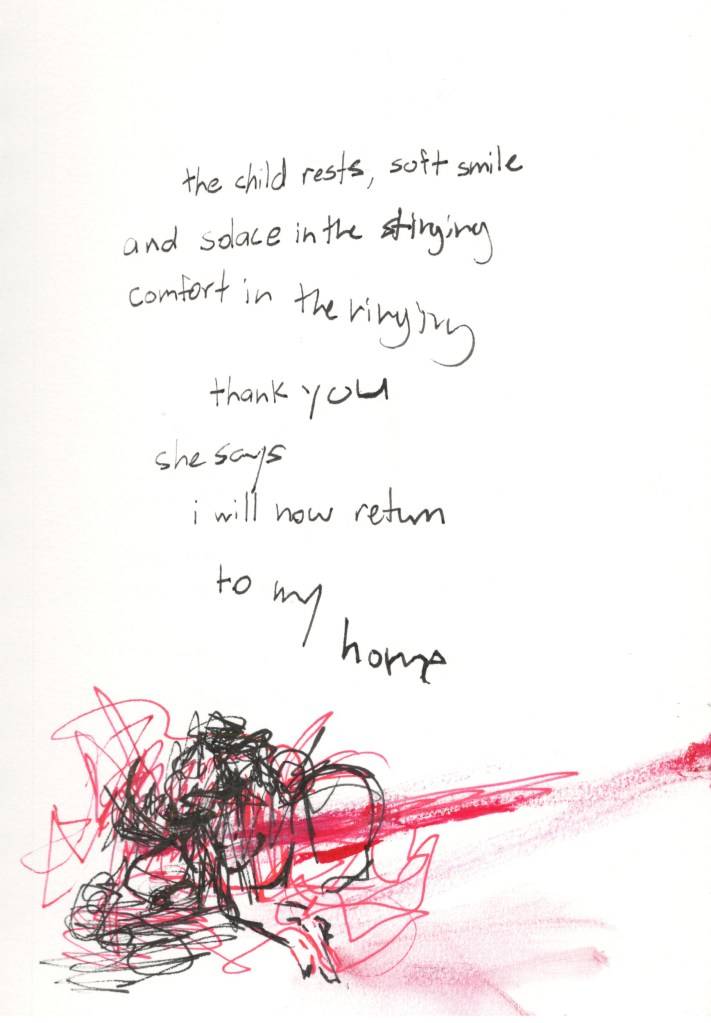 the child rests, soft smile
and solace in the stinging
comfort in the ringing
thank you
she says
i will now return
to my
home